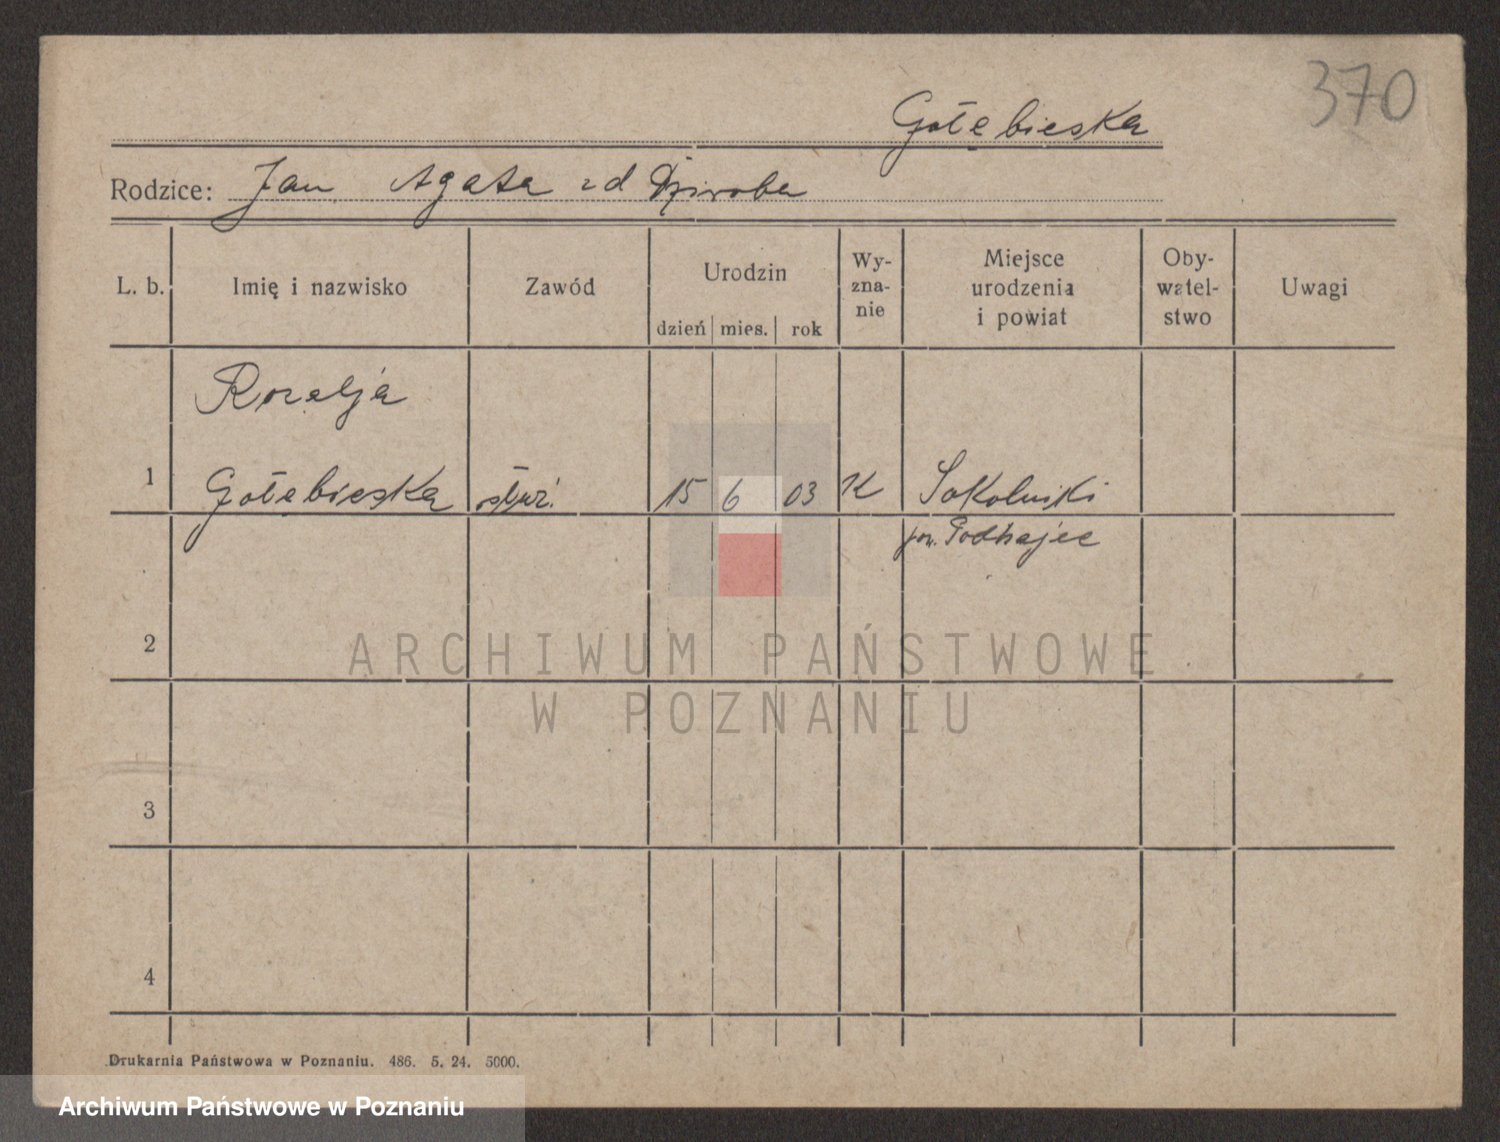 370
Gołębieska
Rodzice: Jan Agata z d Dziroba
L. b. Imię i nazwisko Zawód Urodzin dzień mies. rok Wy-zna-nie Miejsce urodzenia i powiat Oby-watel-stwo Uwagi
Rozalja
1 Gołębieska służ. 15 6 03 K Sokolniki
pow. Podhajce
2
ARCHIWUM PAŃSTWOWE
W POZNANIU
3
4
Drukarnia Państwowa w Poznaniu. 486. 5. 24. 5000.
Archiwum Państwowe w Poznaniu